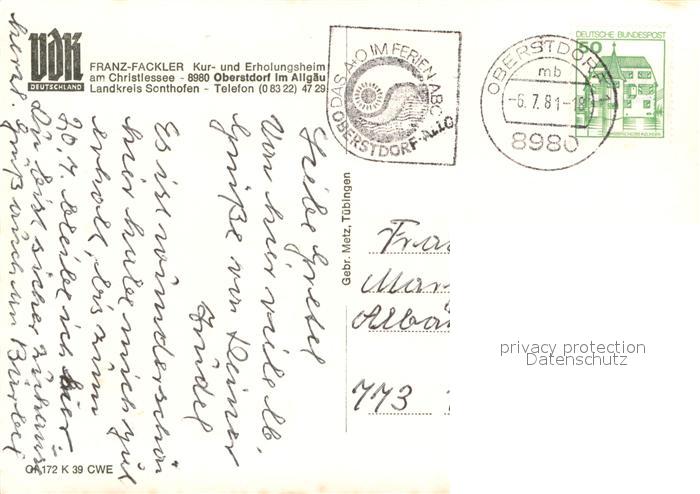 VdK
DEUTSCHLAND
FRANZ-FACKLER Kur- und Erholungsheim
am Christlessee - 8980 Oberstdorf im Allgäu
Landkreis Sonthofen - Telefon (0 83 22) 47 29
DAS A·O IM FERIEN-ABC
OBERSTDORF-ALLG
OBERSTDORF
mb
-6.7.81-18
8980
DEUTSCHE BUNDESPOST
50
Liebe Gretel
Von hier viele lb.
Grüße von Deiner
Es ist wunderschön
hier habe mich gut
erholt, bis zum
20.7. bleibe ich hier
Du bist sicher zuhause
herzl. Gruß auch an Bärbel
Gebr. Metz, Tübingen
773
privacy protection
Datenschutz
Gf 172 K 39 CWE